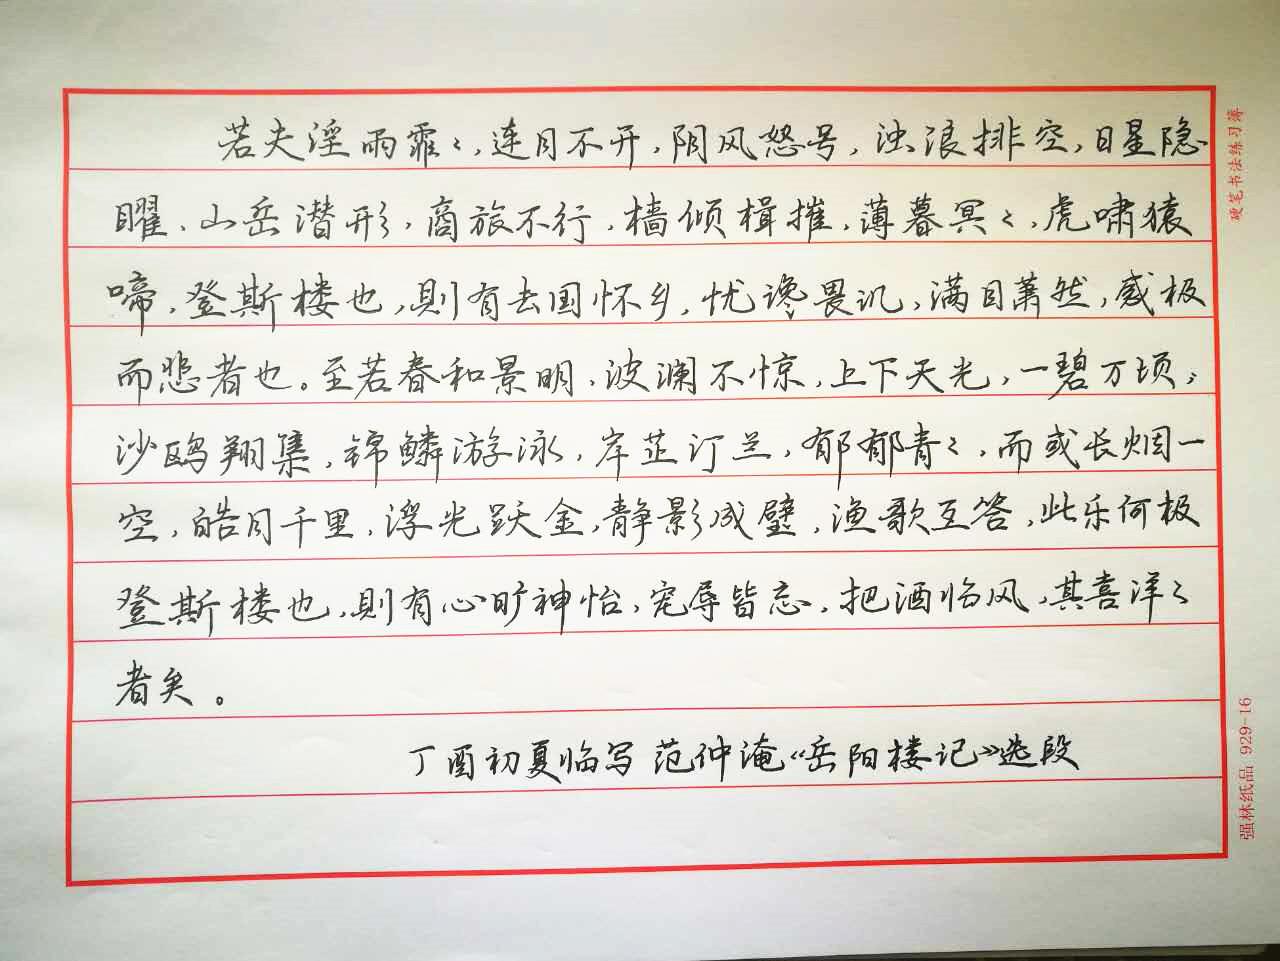 若夫淫雨霏〻,连月不开,阴风怒号,浊浪排空,日星隐
曜、山岳潜形,商旅不行,樯倾楫摧,薄暮冥〻,虎啸猿
啼,登斯楼也,则有去国怀乡,忧谗畏讥,满目萧然,感极
而悲者也。至若春和景明、波澜不惊,上下天光,一碧万顷;
沙鸥翔集,锦鳞游泳,岸芷汀兰,郁郁青〻,而或长烟一
空,皓月千里,浮光跃金,静影成璧,渔歌互答,此乐何极
登斯楼也,则有心旷神怡,宠辱皆忘,把酒临风,其喜洋〻
者矣。
丁酉初夏临写 范仲淹《岳阳楼记》选段
硬笔书法练习簿
强林纸品 929-16